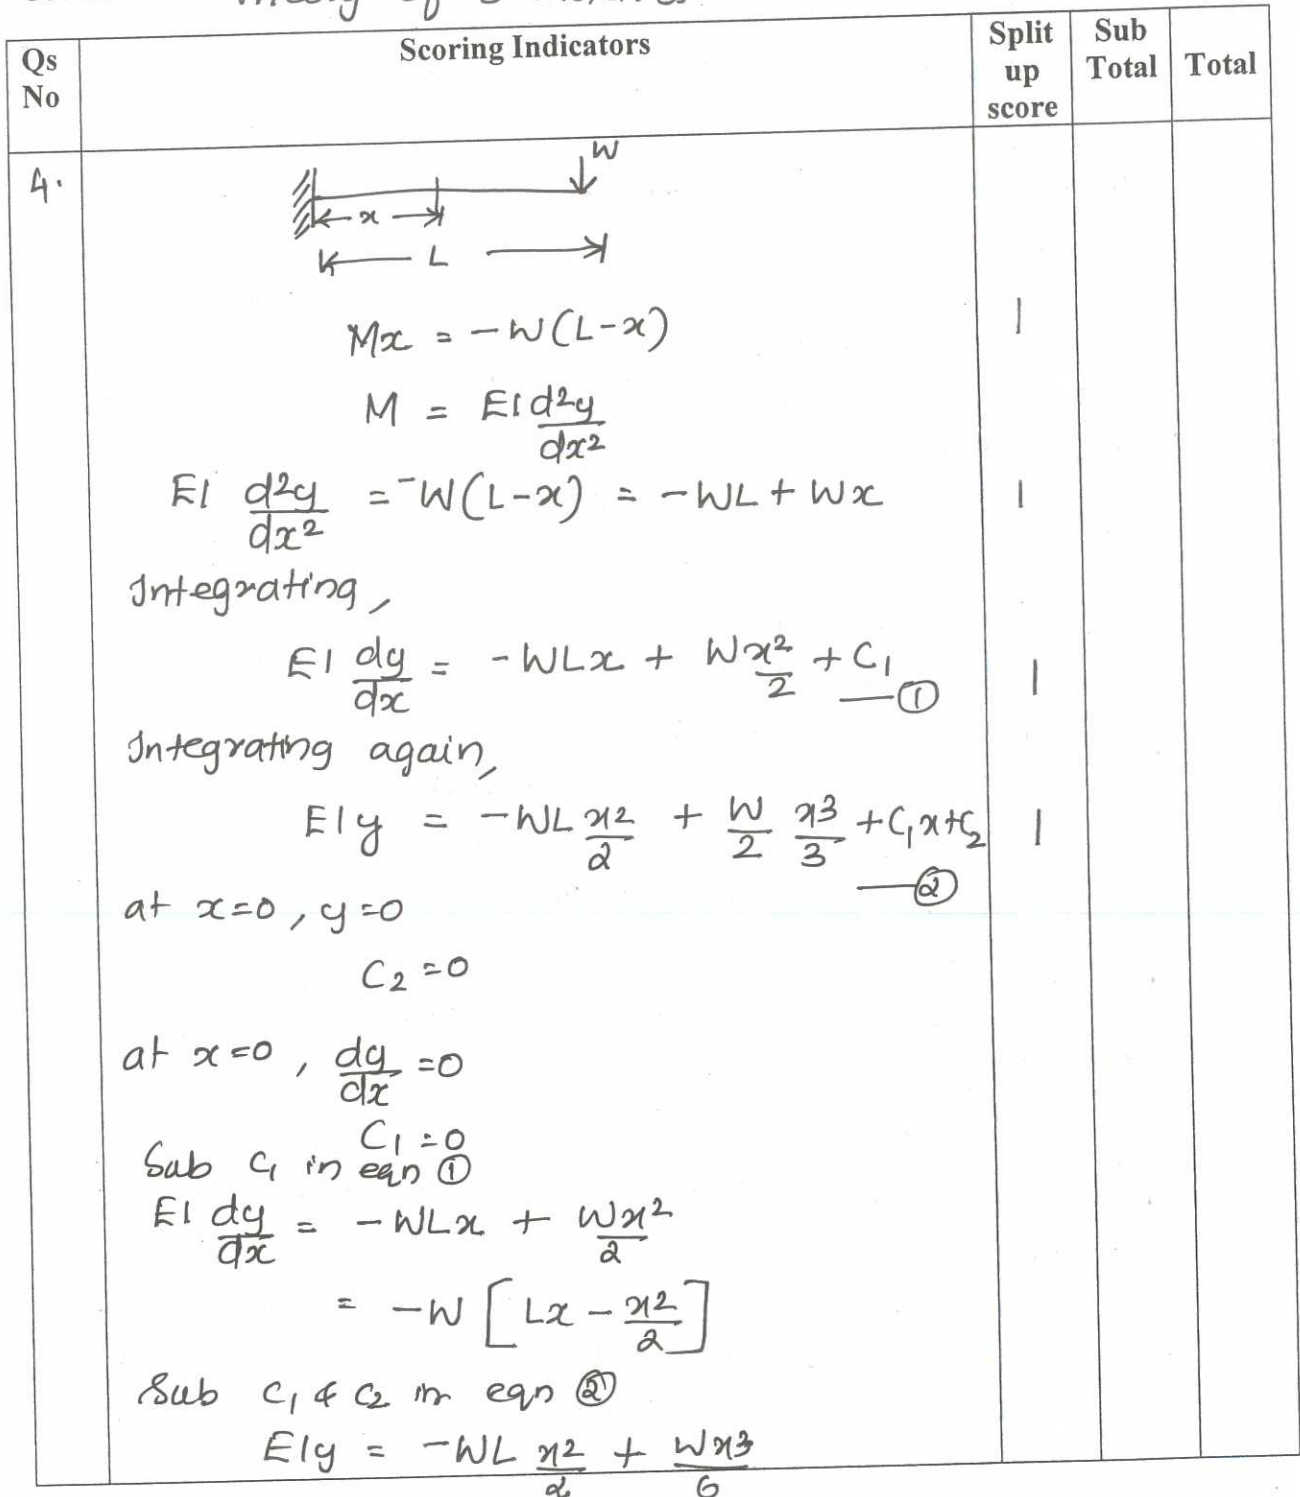 Theory of
Qs No
Scoring Indicators
Split up score
Sub Total
Total
4.
W
x
L
Mx = -W(L-x)
1
M = EI d2y/dx2
EI d2y/dx2 = -W(L-x) = -WL + Wx
1
Integrating,
EI dy/dx = -WLx + Wx2/2 + C1 —①
1
Integrating again,
EIy = -WL x2/2 + W/2 x3/3 + C1x + C2 —②
1
at x=0, y=0
C2 =0
at x=0, dy/dx =0
C1 =0
Sub C1 in eqn ①
EI dy/dx = -WLx + Wx2/2
= -W [Lx - x2/2]
Sub C1 & C2 in eqn ②
EIy = -WL x2/2 + Wx3/6